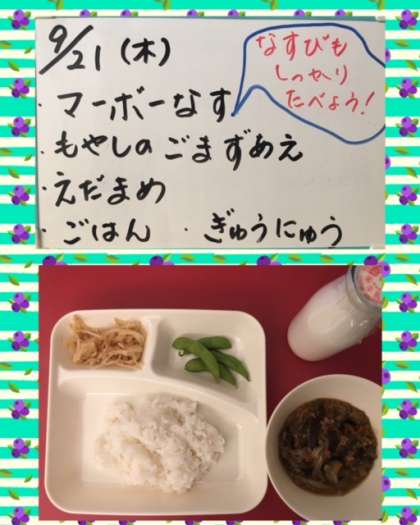 9/21(木)
なすびも
しっかり
たべよう!
・マーボーなす
・もやしのごまずあえ
・えだまめ
・ごはん ・ぎゅうにゅう